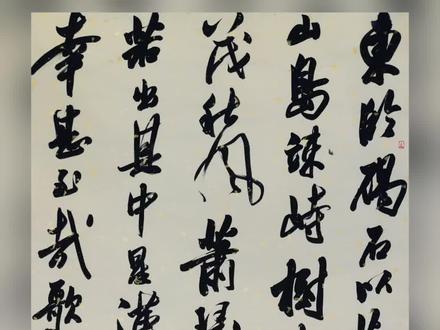 東臨碣石以
山島竦峙樹
茂秋風蕭瑟
若出其中星漢
幸甚至哉歌